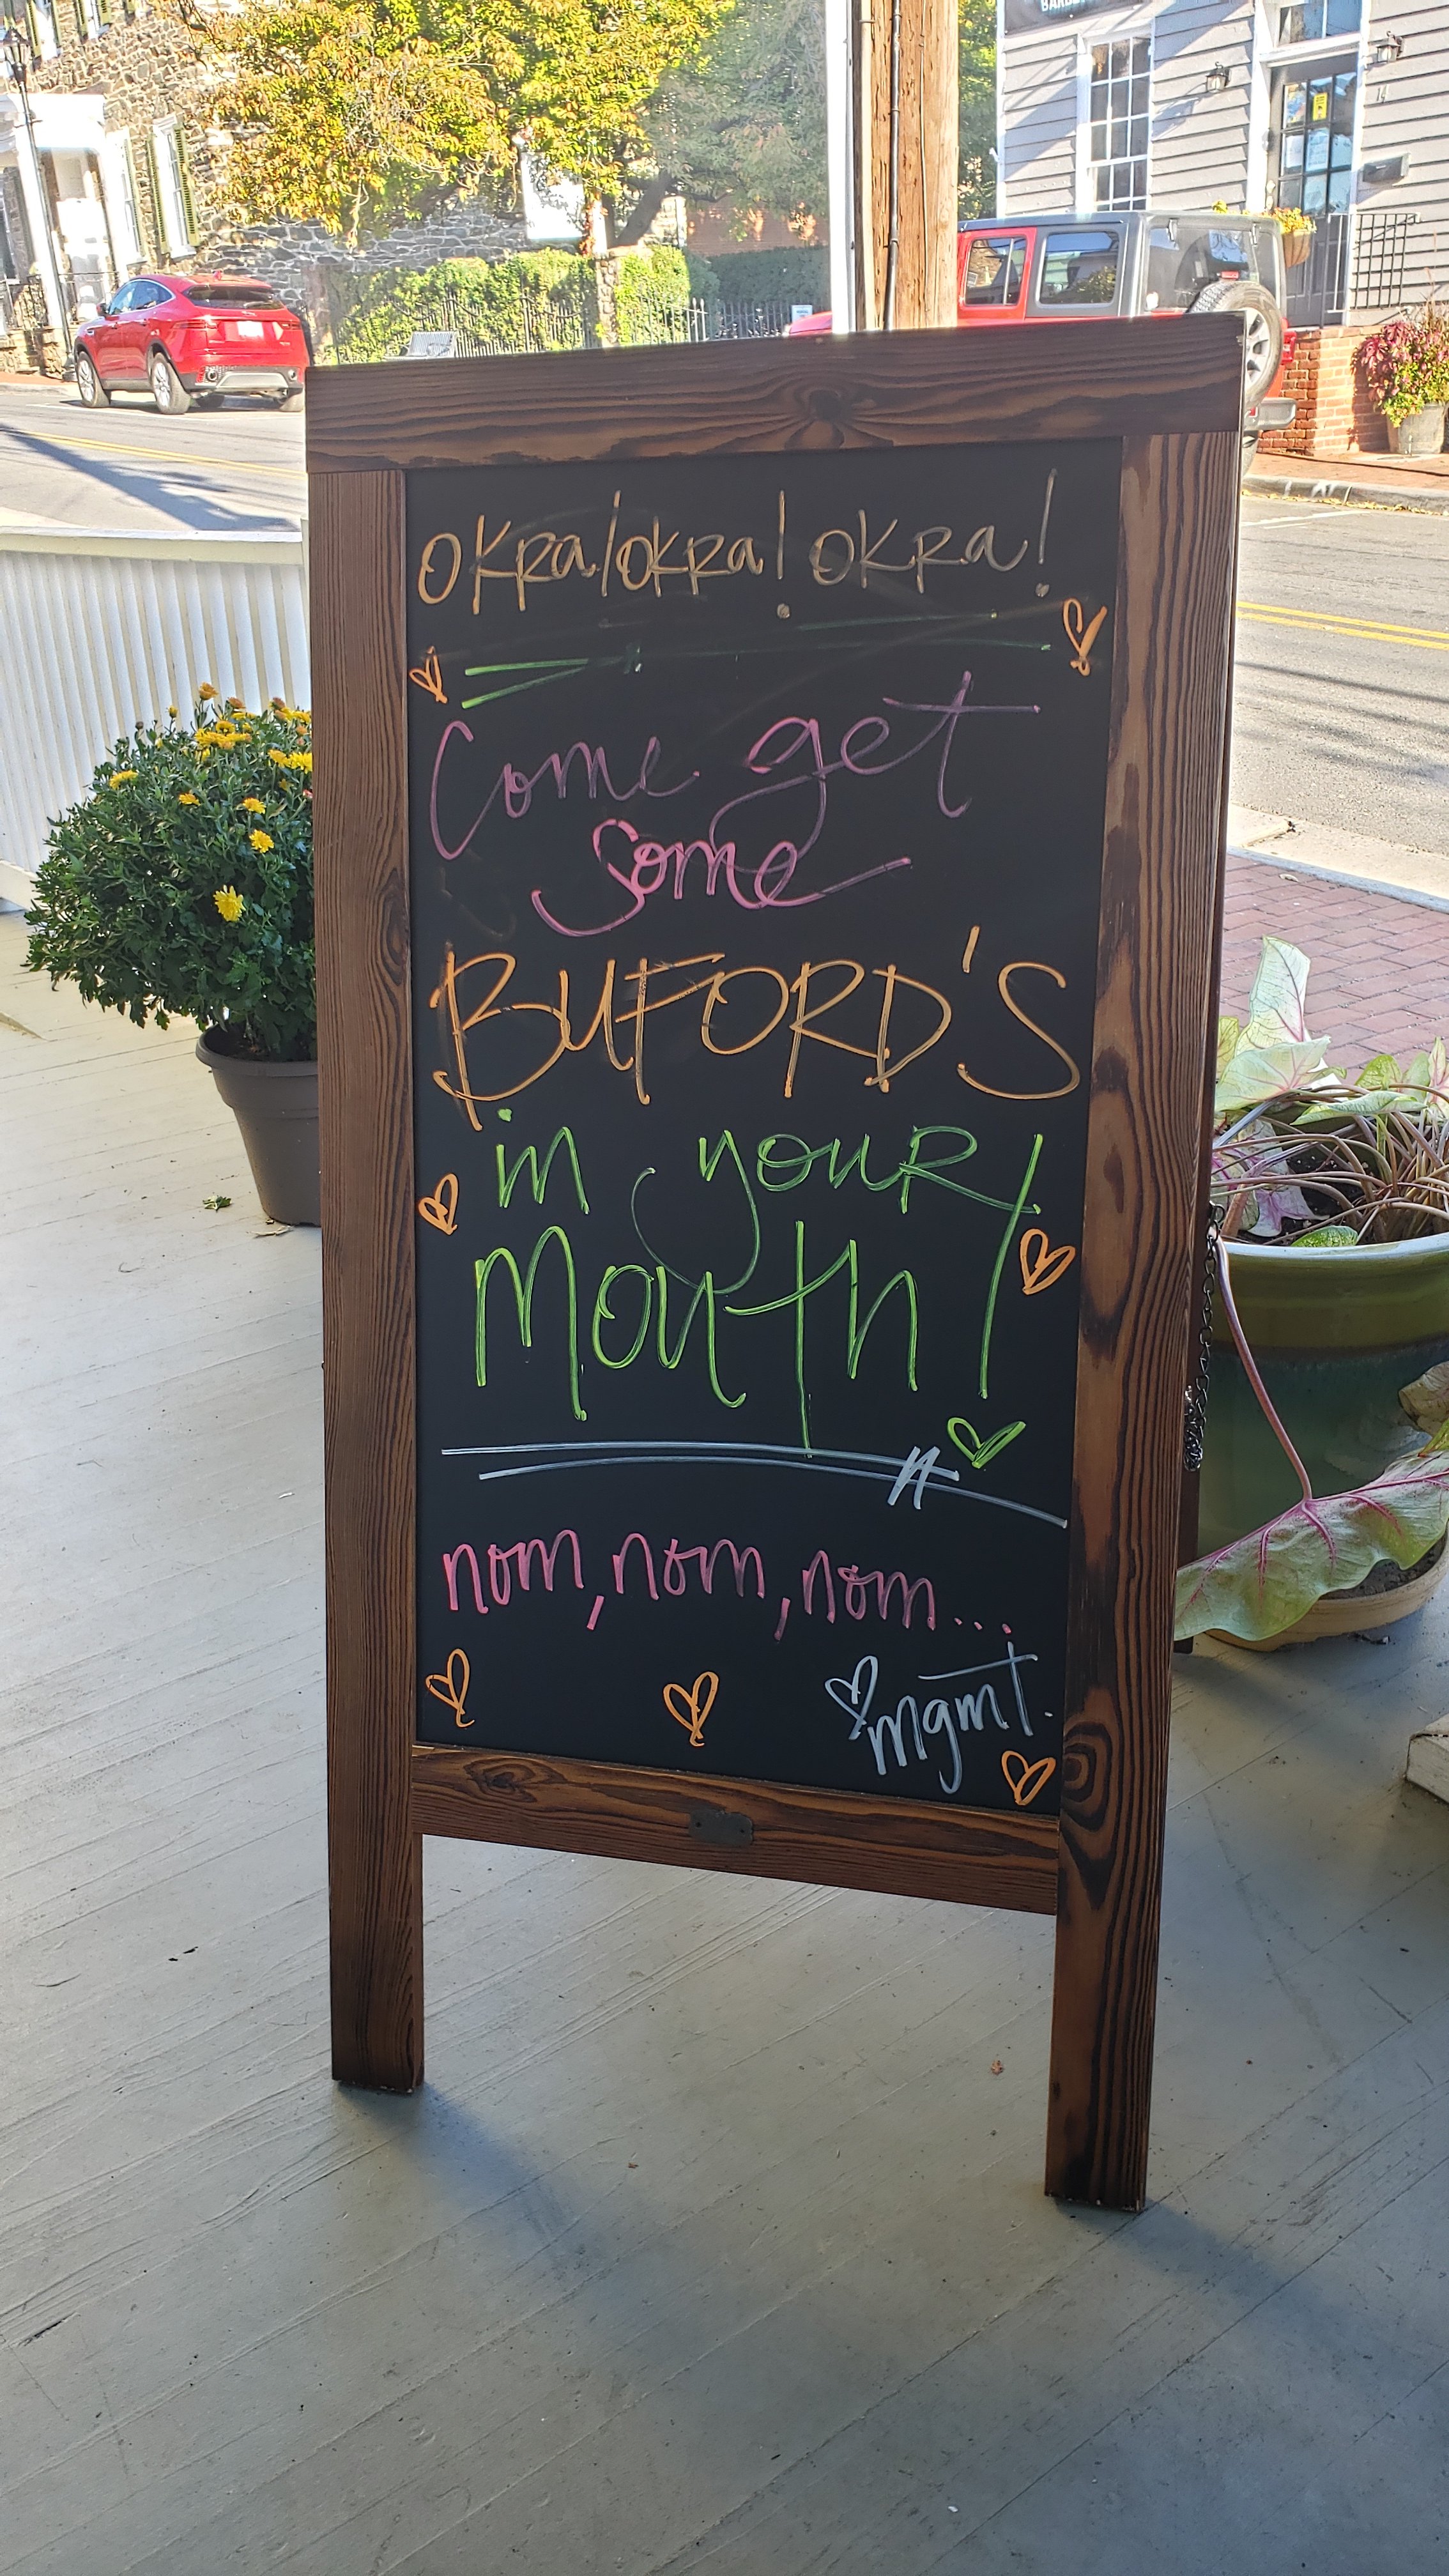 okra! okra! okra!
Come get
some
BUFORD'S
in your
Mouth!
nom, nom, nom...
mgmt.
14